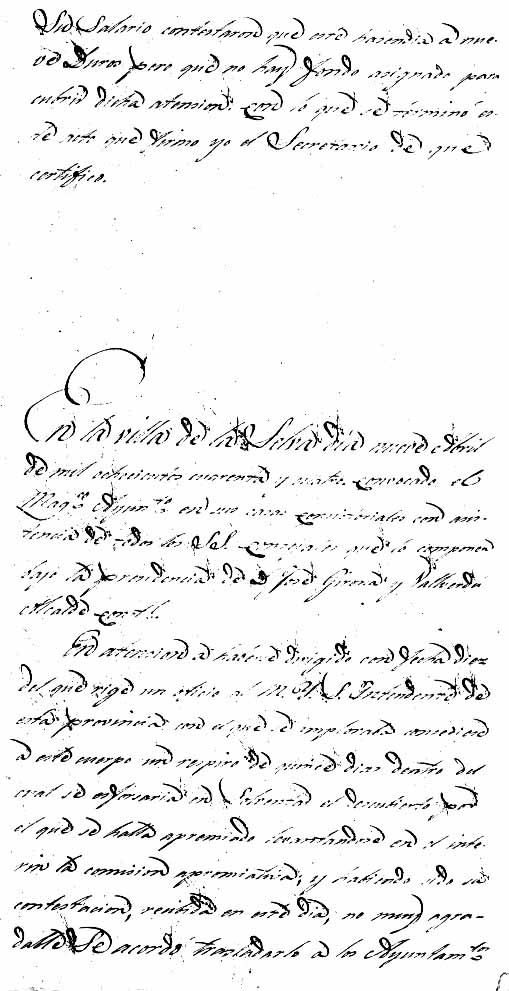 Su Salario contestaron que este hacendia a nue-
ve Duros pero que no hay fondo asignado para
cubrir dicha atencion. Con lo que se terminó es-
te acto que firmo yo el Secretario de que
certifico.
En la villa de la Selva dia nueve Abril
de mil ochocientos cuarenta y cuatro. Convocado el
Magco. Ayunto. en sus casas consistoriales con asis-
tencia de todos los SS. Concejales que lo componen
bajo la presidencia de D. José Girona y Vallverdú
Alcalde contl.
En atencion a haberse dirigido con fecha diez
del que rige un oficio al M. Y. S. Yntendente de
esta provincia con el que se imploraba concediese
a este cuerpo un respiro de quince dias dentro del
cual se esforsaria en Solventar el descubierto por
el que se halla apremiado levantandose en el inte-
rin la comision apremiativa; y habiendo sido su
contestacion, recibida en este dia, no muy agra-
dable Se acordó trasladarlo a los Ayuntamtos.